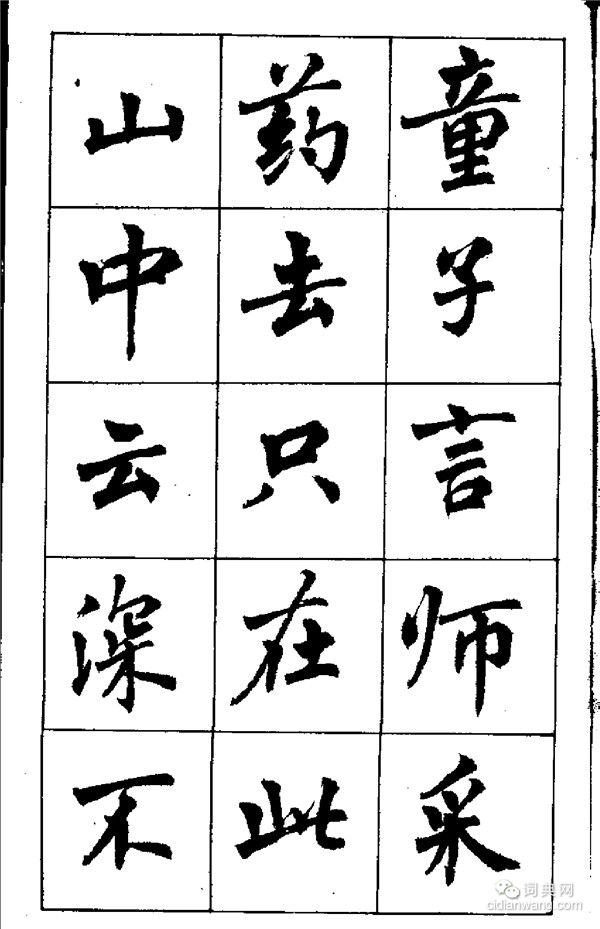 童子言师采
药去只在此
山中云深不
词典网
cidianwang.com